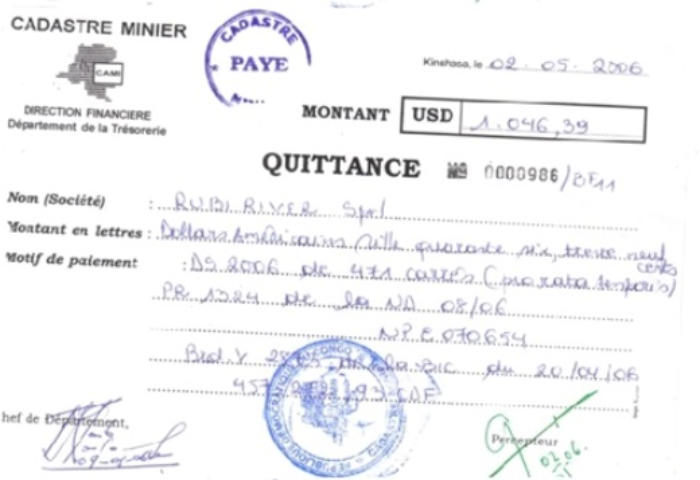 CADASTRE MINIER
CAMI
DIRECTION FINANCIERE
Département de la Trésorerie
CADASTRE
PAYE
Kinshasa, le 02.05.2006
MONTANT USD 1.046,39
QUITTANCE № 0000986/BF11
Nom (Société) : RUBI RIVER Sprl
Montant en lettres : Dollars Américains Mille quarante six, trente neuf cents
Motif de paiement : DS 2006 de 471 carrés (prorata temporis)
PR 1324 de la ND 08/06
NPE 070654
Bord. V de la BIC du 20/04/06
REPUBLIQUE DEMOCRATIQUE DU CONGO
hef de Département,
Percepteur
02.06.